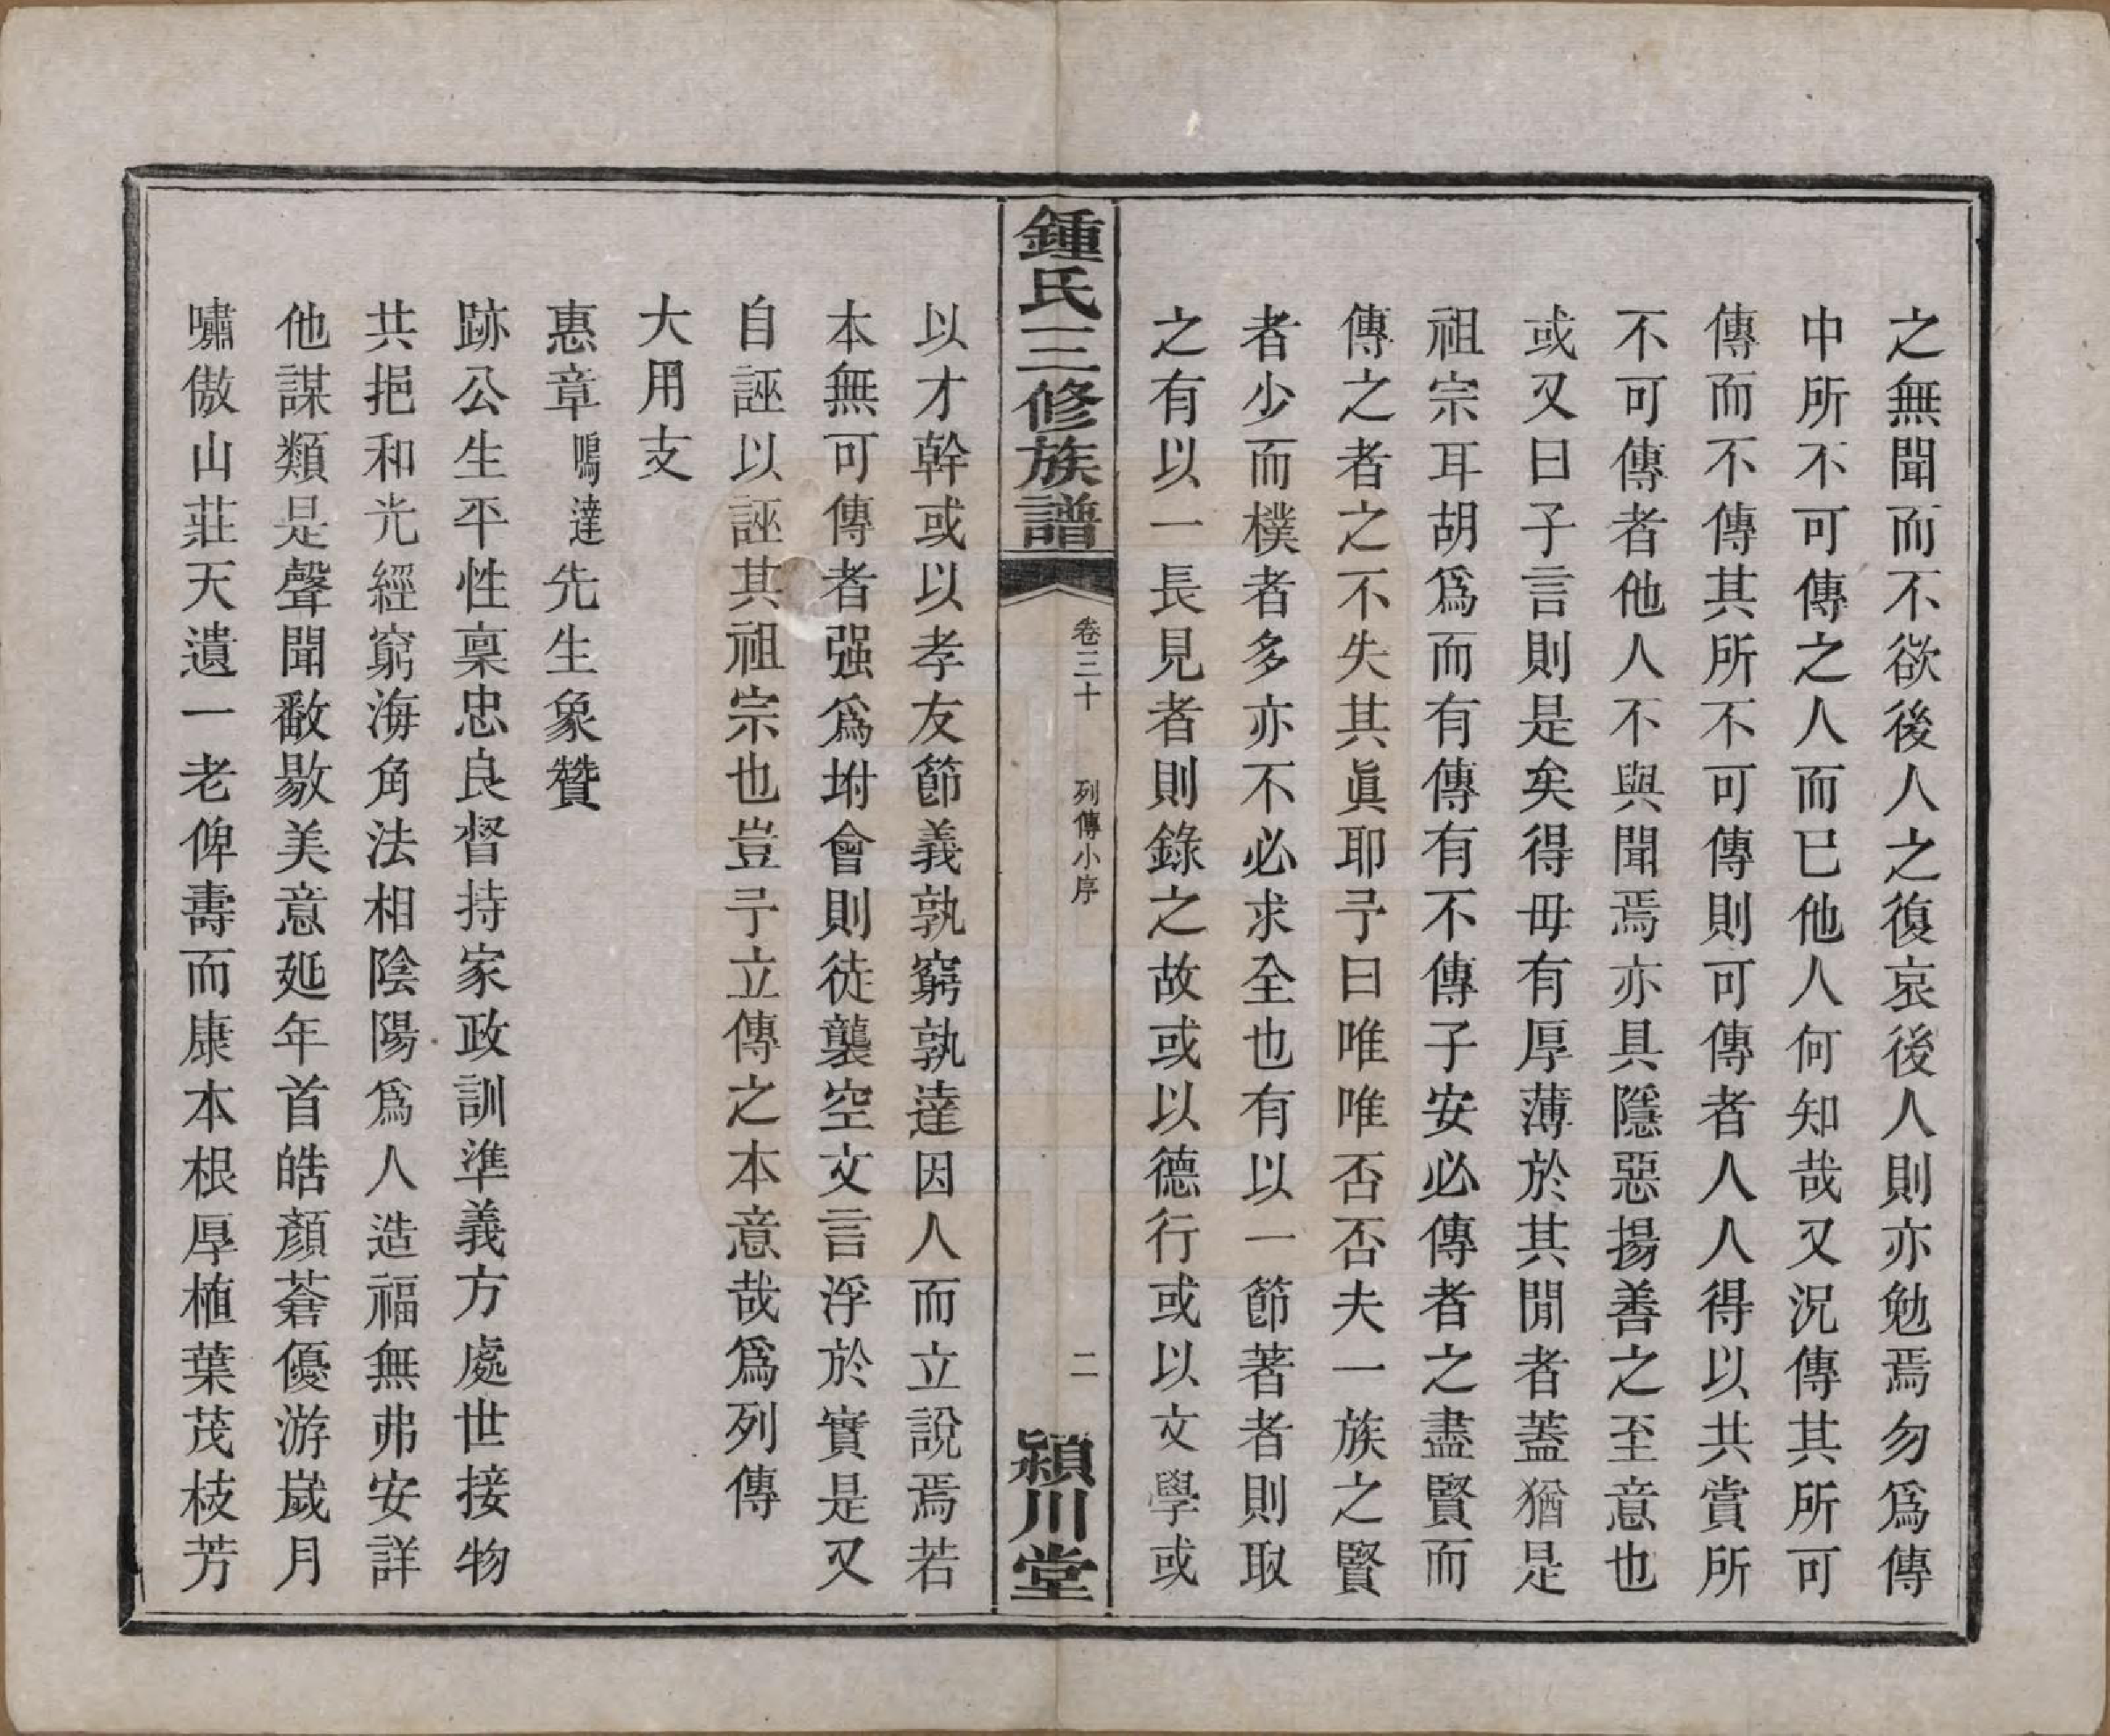 之無聞而不欲後人之復哀後人則亦勉焉勿爲傳
中所不可傳之人而已他人何知哉又況傳其所可
傳而不傳其所不可傳則可傳者人人得以共賞所
不可傳者他人不與聞焉亦具隱惡揚善之至意也
或又曰子言則是矣得毋有厚薄於其閒者蓋猶是
祖宗耳胡爲而有傳有不傳子安必傳者之盡賢而
傳之者之不失其眞耶予曰唯唯否否夫一族之賢
者少而樸者多亦不必求全也有以一節著者則取
之有以一長見者則錄之故或以德行或以文學或
鍾氏三修族譜
卷三十
列傳小序
二
潁川堂
以才幹或以孝友節義孰窮孰達因人而立說焉若
本無可傳者强爲坿會則徒襲空文言浮於實是又
自誣以誣其祖宗也豈予立傳之本意哉爲列傳
大用支
惠章鳴達先生象贊
跡公生平性稟忠良督持家政訓準義方處世接物
共挹和光經窮海角法相陰陽爲人造福無弗安詳
他謀類是聲聞翻歇美意延年首皓顏蒼優游歲月
嘯傲山莊天遺一老俾壽而康本根厚植葉茂枝芳